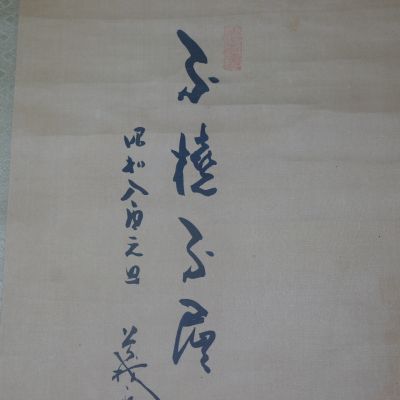 不橈不屈
昭和八酉元旦